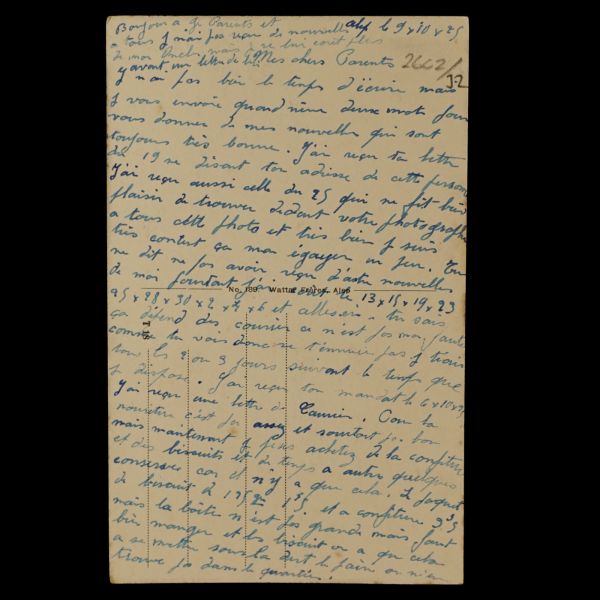 Bonjour a Gd Parents et
a tous j'nai pas reçu de nouvelles
de mon Oncle mais je lui écrit plus
y avait une lettre de
alep le 9 x 10 x 25
Mes chers Parents 2662/
J-2
j'nai pas bien le temps d'écrire mais
j vous envoie quand même deux mots pour
vous donner de mes nouvelles qui sont
toujours très bonne. J'ai reçu ta lettre
du 19 me disant ton adresse de cette personne
J'ai reçu aussi celle du 25 qui me fit bien
plaisir de trouver dedant votre photographie
a tous cette photo et très bien j suis
très content ça m'a égayer un peu. Tu
me dit ne pas avoir reçu d'autre nouvelles
de moi pourtant j'ai écrit le 13 x 15 x 19 x 23
No. 189. Wattar Frères, Alep
25 x 28 x 30 x 2 x 4 x 6 et alles . tu sais
ça dépend des courier ce n'est pas ma faute
comme tu vois donc ne t'ennuie pas j'écrais
tous les 2 ou 3 jours suivant le temps que
j dispose. J'ai reçu ton mandat le 6 x 10 x 25
J'ai reçu une lettre de Camier. Oui la
nouriture c'est pas assez et sourtout pas bon
mais maintenant j peux achetez de la confiture
et des biscuits et de temps a autre quelques
conserves car il n'y a que cela. Le paquet
de biscuit à 1 25 et a confiture 3 25
mais la boîte n'est pas grande mais faut
bien manger et les biscuit on a que cela
a se mettre sous la dent le pain on n'en
trouve pas dans le quartier.